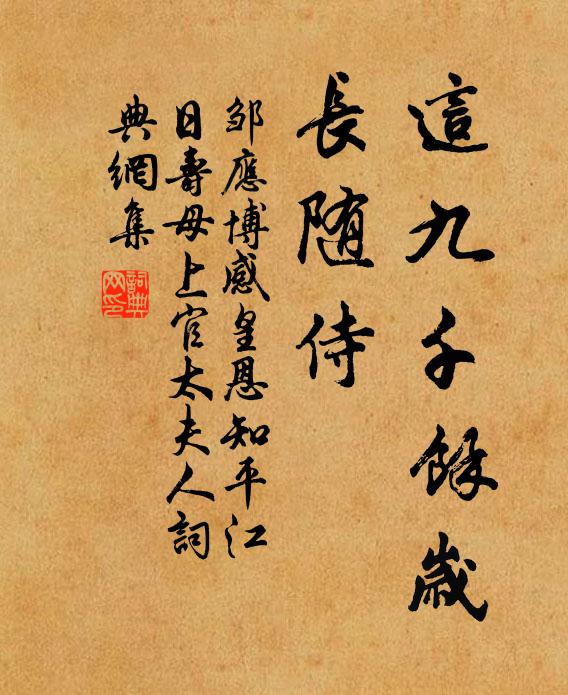 這九千餘歲
長随侍
邹應博感皇恩知平江
日壽母上官太夫人詞
典網集
詞典
网印